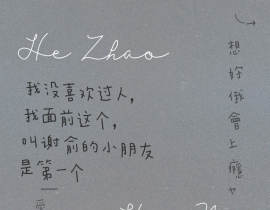 He Zhao
我没喜欢过人,
我面前这个,
叫谢俞的小朋友
是第一个
想你俄會上癮